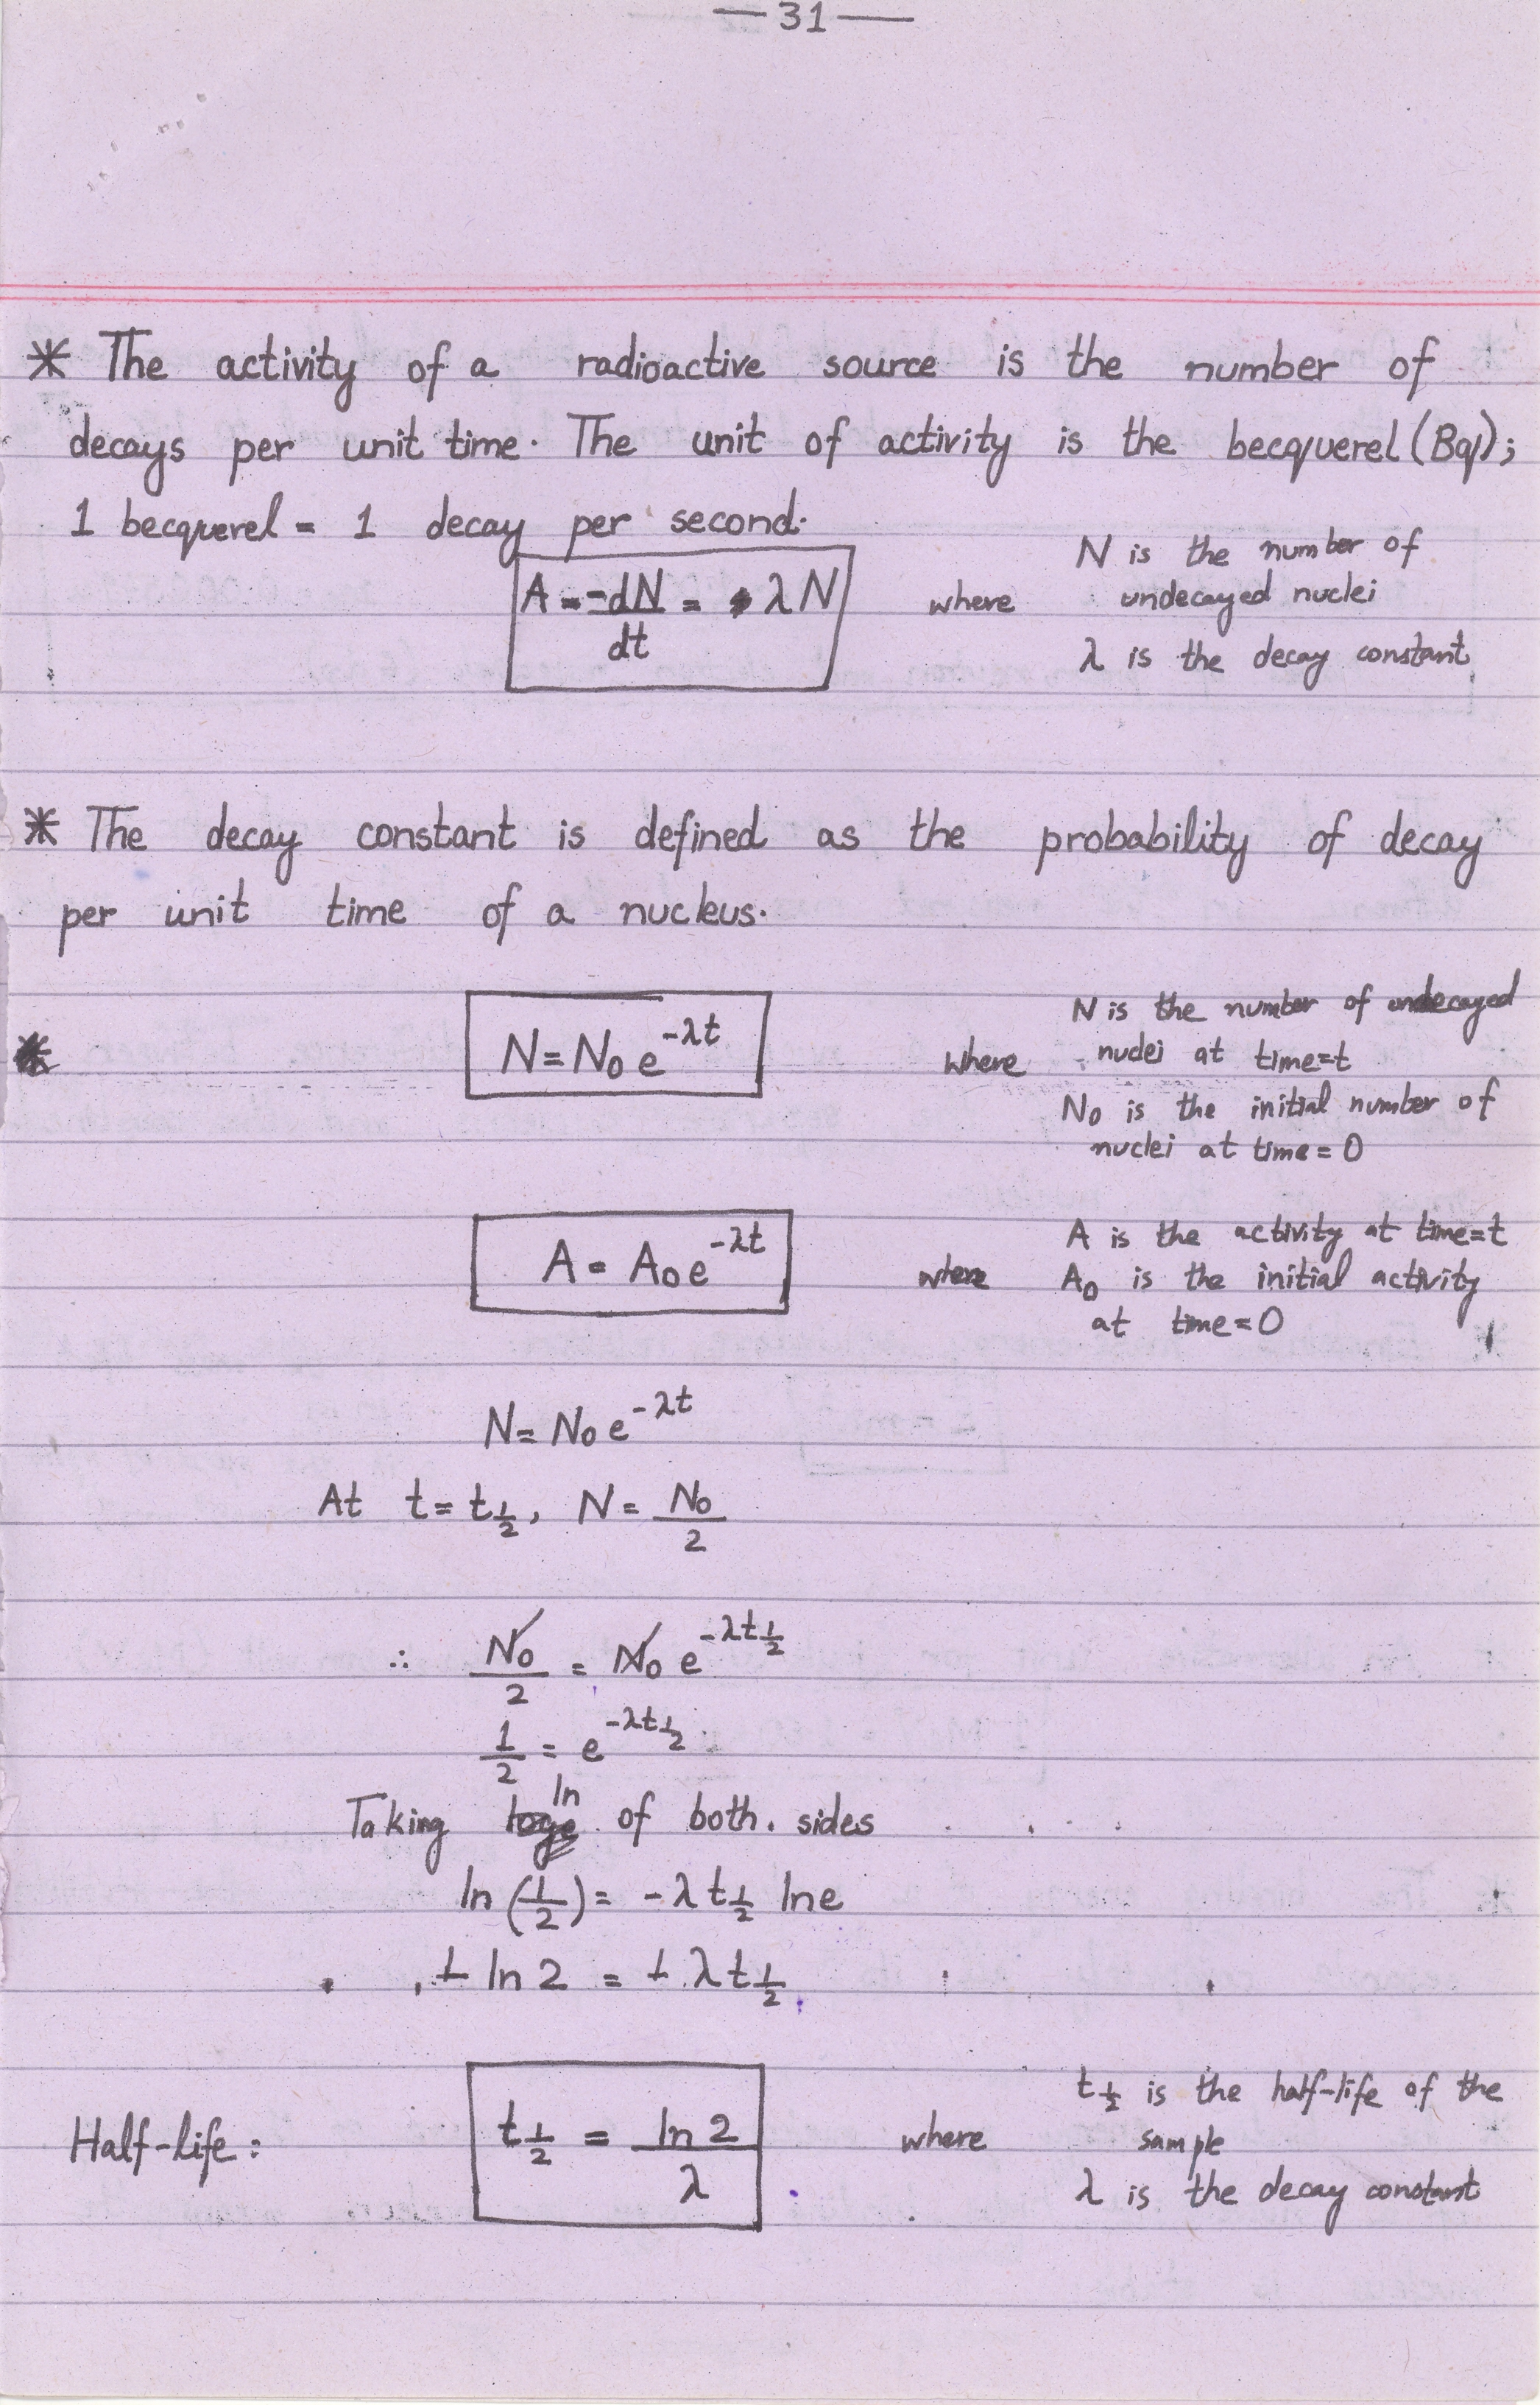 — 31 —
* The activity of a radioactive source is the number of
decays per unit time. The unit of activity is the becquerel (Bq);
1 becquerel = 1 decay per second.
A = -dN/dt = λN where N is the number of
undecayed nuclei
λ is the decay constant
* The decay constant is defined as the probability of decay
per unit time of a nucleus.
* N = N₀ e^{-λt} where N is the number of undecayed
nuclei at time=t
N₀ is the initial number of
nuclei at time=0
A = A₀ e^{-λt} where A is the activity at time=t
A₀ is the initial activity
at time=0
N = N₀ e^{-λt}
At t = t_{1/2}, N = N₀/2
∴ N₀/2 = N₀ e^{-λt_{1/2}}
1/2 = e^{-λt_{1/2}}
Taking ln of both sides
ln(1/2) = -λ t_{1/2} ln e
- ln 2 = - λ t_{1/2}
Half-life: t_{1/2} = ln 2/λ where t_{1/2} is the half-life of the
sample
λ is the decay constant